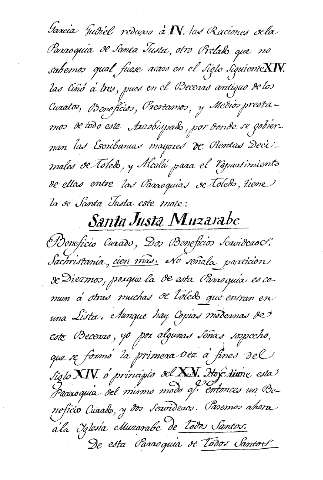 Garcia Gudiel reduxo à IV. las Raciones de la
Parroquia de Santa Justa, otro Prelado que no
sabemos qual fuese acaso en el Siglo siguiente XIV.
las ciñó à tres, pues en el Becerro antiguo de los
Curatos, Beneficios, Prestamos, y Medios presta-
mos de todo este Arzobispado, por donde se gobier-
nan las Escribanias mayores de Rentas Deci-
males de Toledo, y Alcalá para el repartimiento
de ellas entre las Parroquias de Toledo, tiene
la de Santa Justa este mote:
Santa Justa Muzarabe
Beneficio Curado, Dos Beneficios Servideros.
Sachristania, cien mrs. No señala particion
de Diezmos, porque la de esta Parroquia es co-
mun à otras muchas de Toledo que entran en
una Lista. Aunque hay Copias modernas de
este Becerro, yo por algunas señas sospecho,
que se formó la primera vez a fines del
Siglo XIV. ó principio del XV. Hoy tiene esta
Parroquia del mismo modo qe. entonces un Be-
neficio Curado, y dos Servideros. Pasemos ahora
à la Iglesia Muzarabe de Todos Santos.
De esta Parroquia de Todos Santos